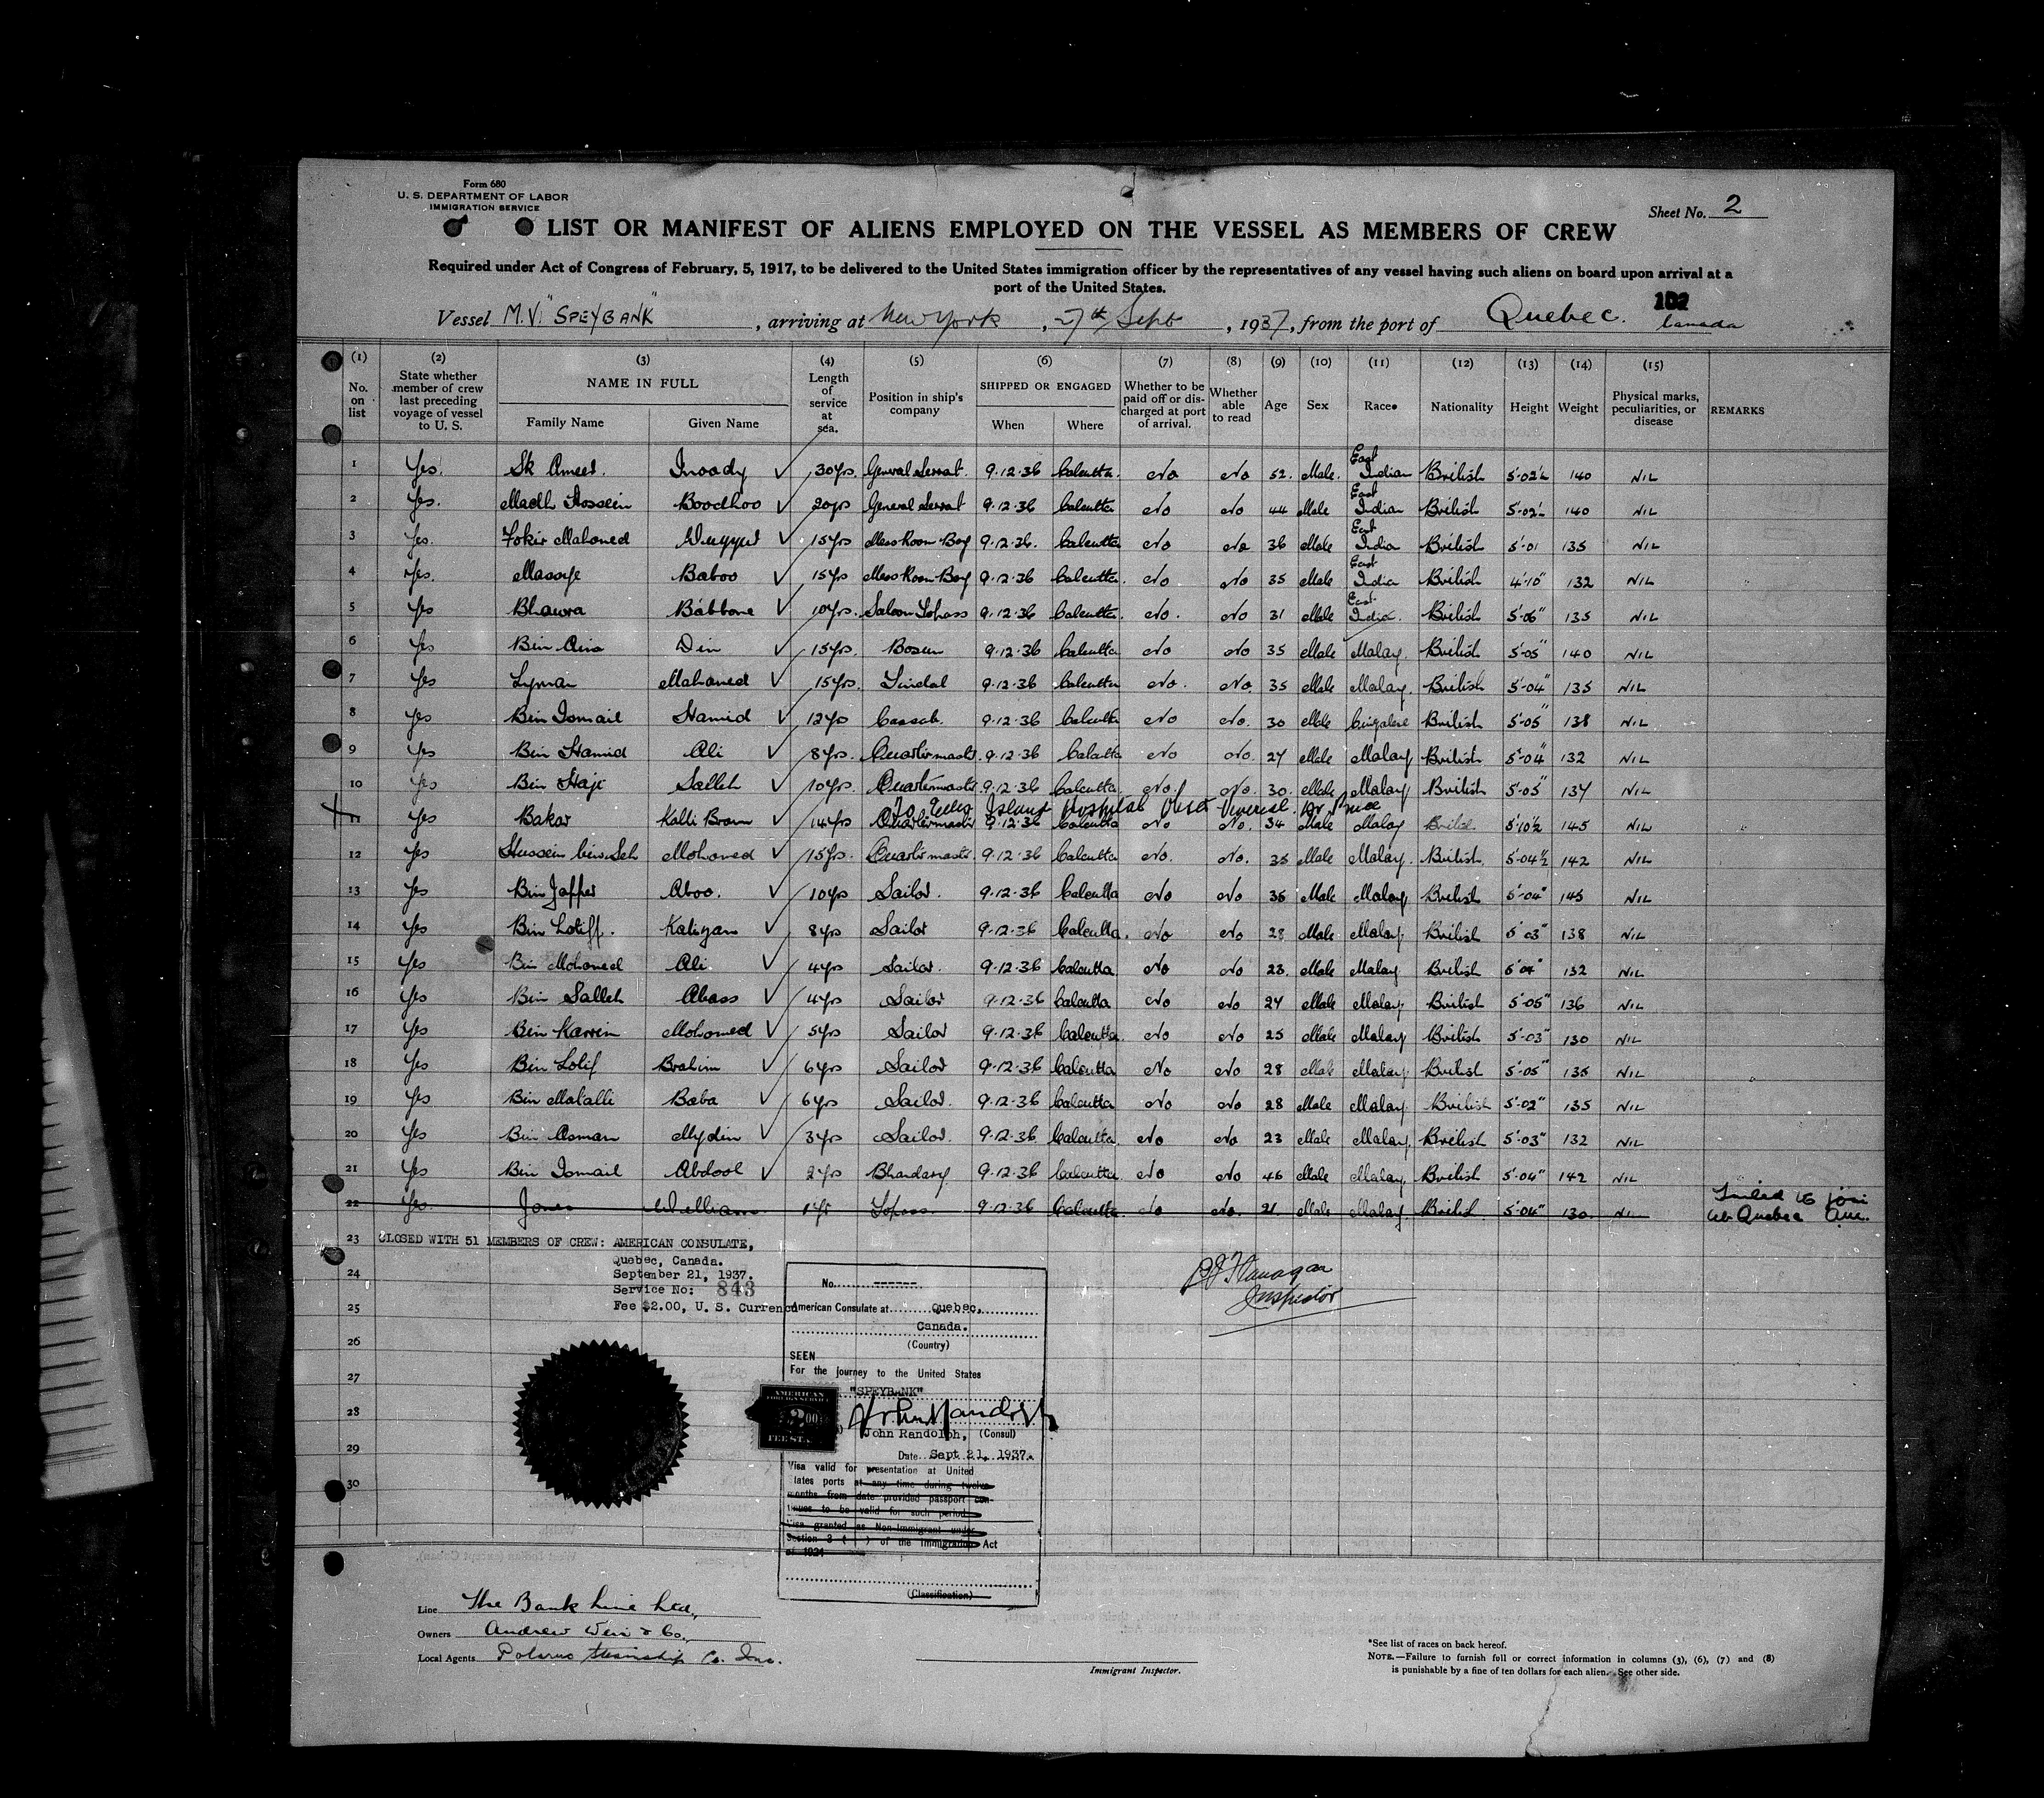 Form 680
U. S. DEPARTMENT OF LABOR
IMMIGRATION SERVICE
Sheet No. 2
LIST OR MANIFEST OF ALIENS EMPLOYED ON THE VESSEL AS MEMBERS OF CREW
Required under Act of Congress of February, 5, 1917, to be delivered to the United States immigration officer by the representatives of any vessel having such aliens on board upon arrival at a
port of the United States.
102
Vessel M.V. "SPEYBANK", arriving at New York, 27th Sept, 1937, from the port of Quebec. Canada
(1) (2) (3) (4) (5) (6) (7) (8) (9) (10) (11) (12) (13) (14) (15)
No. on list State whether member of crew last preceding voyage of vessel to U. S. NAME IN FULL Family Name Given Name Length of service at sea. Position in ship's company SHIPPED OR ENGAGED When Where Whether to be paid off or discharged at port of arrival. Whether able to read Age Sex Race* Nationality Height Weight Physical marks, peculiarities, or disease REMARKS
1 Yes. Sk Ameer. 30yrs. General Servat. 9.12.36 Calcutta No No 52. Male. East Indian British 5'-02½ 140 NIL
2 Yes. Hossein Boodhoo 20yrs General Servat 9.12.36 Calcutta No No 44 Male East Indian British 5'-02½ 140 NIL
3 Yes. Fokir Mahomed 15yrs Mess Room Boy 9.12.36. Calcutta No No 36 Male East India British 5'-01 135 NIL
4 Yes. Baboo 15yrs Mess Room Boy 9.12.36 Calcutta. No No 35 Male East India British 4'-10" 132 NIL
5 Yes Bhawra Babbone 10yrs. Saloon Topass 9.12.36 Calcutta. No. No 31 Male East India. British 5'-06" 135 NIL
6 Yes Bin Din 15yrs. Bosun 9.12.36 Calcutta No No 35 Male Malay. British 5'-05" 140 NIL
7 Yes Lyman Mahomed 15yrs. Tindal 9.12.36 Calcutta No. No. 35 Male Malay. British 5'-04" 135 NIL
8 Yes Bin Ismail Hamid 12yrs Cassab. 9.12.36 Calcutta No No. 30 Male Cingalese British 5'-05" 138 NIL
9 Yes Bin Hamid Ali 8yrs. Quartermaster. 9.12.36 Calcutta No No. 27 Male Malay British 5'-04" 132 NIL
10 Yes Bin Haji Salleh 10yrs. Quartermaster. 9.12.36 Calcutta. No. No. 30. Male Malay British 5'-05" 134 NIL
To Ellis Island Hospital
11 Yes Bakar 14yrs Quartermaster 9.12.36 Calcutta No No. 34 Male Malay 5'10½ 145 NIL
12 Yes Hussein bin Seh Mohomed 15yrs. Quartermaster. 9.12.36 Calcutta No. No. 35 Male Malay. British 5'-04½ 142 NIL
13 Yes Bin Jaffer Aboo. 10yrs Sailor. 9.12.36 Calcutta No No 36 Male Malay British 5'-04" 145 NIL
14 Yes Bin Lotiff. 8yrs Sailor 9.12.36 Calcutta. No No 28 Male Malay British 5'03" 138 NIL
15 Yes Bin Mohomed Ali 4yrs Sailor. 9.12.36 Calcutta No No 23. Male Malay British 5'04" 132 NIL
16 Yes Bin Salleh Abass 4yrs Sailor 9.12.36 Calcutta No No 24 Male Malay British 5'-05" 136 NIL
17 Yes Bin Karrim Mohomed 5yrs Sailor 9.12.36 Calcutta. No No 25 Male Malay British 5'-03" 130 NIL
18 Yes Bin Lotif Brahim 6yrs Sailor 9.12.36 Calcutta No No 28 Male Malay. British 5'-05" 135 NIL
19 Yes Bin Matalli Baba 6yrs Sailor. 9.12.36 Calcutta No No 28 Male Malay. British 5'-02" 135 NIL
20 Yes Bin Osman Mydin 3yrs Sailor. 9.12.36 Calcutta. No No 23 Male Malay. British 5'-03" 132 NIL
21 Yes Bin Ismail Abdool 2yrs Bhandary. 9.12.36 Calcutta. No No 46 Male Malay. British 5'-04" 142 NIL
22 Yes. Jones William 1yr Topass 9.12.36 Calcutta. No No. 21. Male Malay. British 5'-04" 130. NIL Failed to join at Quebec
23 CLOSED WITH 51 MEMBERS OF CREW: AMERICAN CONSULATE,
Quebec, Canada.
24 September 21, 1937.
Service No: 843
25 Fee $2.00, U. S. Currency
26
27
28
29
30
Flanagan
Inspector
No. ------
American Consulate at Quebec,
Canada.
(Country)
SEEN
For the journey to the United States
"SPEYBANK"
AMERICAN
FOREIGN SERVICE
$2.00
FEE STAMP
John Randolph
John Randolph, (Consul)
Date Sept 21, 1937.
Visa valid for presentation at United
States ports at any time during twelve
months from date provided passport con-
tinues to be valid for such period
Visa granted as Non-Immigrant under
Section 3 ( ) of the Immigration Act
of 1924
(Classification)
Line The Bank Line Ltd.,
Owners Andrew Weir & Co.,
Local Agents Polarus Steamship Co. Inc.
Immigrant Inspector.
*See list of races on back hereof.
NOTE.—Failure to furnish full or correct information in columns (3), (6), (7) and (8)
is punishable by a fine of ten dollars for each alien. See other side.